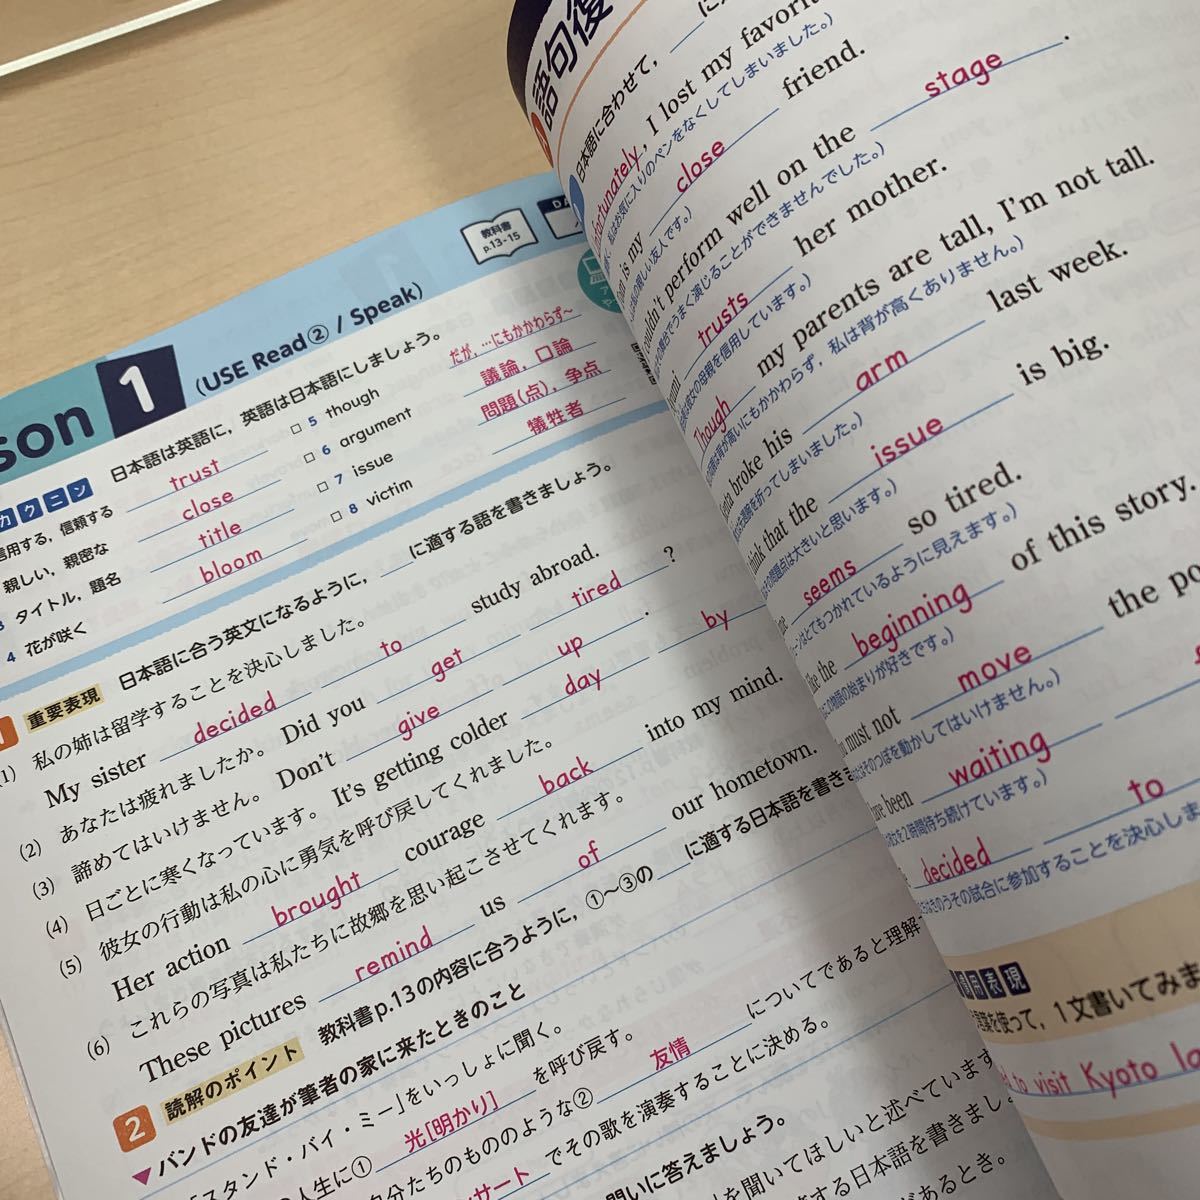 son 1 (USE Read② / Speak)
教科書
p.13-15
カクニン 日本語は英語に，英語は日本語にしましょう。
信用する，信頼する trust
親しい，親密な close
3 タイトル，題名 title
4 花が咲く bloom
□ 5 though だが，…にもかかわらず～
□ 6 argument 議論，口論
□ 7 issue 問題(点)，争点
□ 8 victim 犠牲者
1 重要表現 日本語に合う英文になるように，＿に適する語を書きましょう。
(1) 私の姉は留学することを決心しました。
My sister decided to study abroad.
(2) あなたは疲れましたか。 Did you get tired ?
(3) 諦めてはいけません。 Don't give up .
(4) 日ごとに寒くなっています。 It's getting colder day by
(5) 彼女の行動は私の心に勇気を呼び戻してくれました。
Her action brought courage back into my mind.
(6) これらの写真は私たちに故郷を思い起こさせてくれます。
These pictures remind us of our hometown.
2 読解のポイント 教科書p.13の内容に合うように，①～③の＿に適する日本語を書き
▼バンドの友達が筆者の家に来たときのこと
「スタンド・バイ・ミー」をいっしょに聞く。
人生に① 光[明かり] を呼び戻す。
自分たちのもののような② 友情 についてであると理解
でその歌を演奏することに決める。
問いに答えましょう。
を聞いてほしいと述べています
する日本語を書きまし
があるとき。
語句復
日本語に合わせて，＿に
fortunately, I lost my favori
私はお気に入りのペンをなくしてしまいました。）
is my close friend.
の親しい友人です。）
couldn't perform well on the stage .
舞台でうまく演じることができませんでした。）
trusts her mother.
彼女の母親を信用しています。）
Though my parents are tall, I'm not tall.
が高いにもかかわらず，私は背が高くありません。）
broke his arm last week.
腕を折ってしまいました。）
think that the issue is big.
その問題点は大きいと思います。）
seems so tired.
はとてもつかれているように見えます。）
like the beginning of this story.
この物語の始まりが好きです。）
must not move the po
そのつぼを動かしてはいけません。）
have been waiting
を2時間待ち続けています。）
decided to
その試合に参加することを決心しま
用表現
を使って，1文書いてみま
to visit Kyoto la